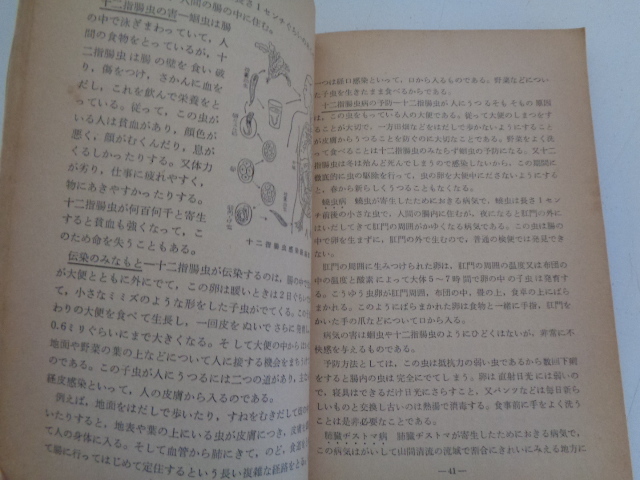 人間の腸の中に住む。
十二指腸虫の害―蛔虫は腸
の中で泳ぎまわっていて、人
間の食物をとっているが、十
二指腸虫は腸の壁を食い破
り、傷をつけ、さかんに血を
だし、これを飲んで栄養をと
っている。従って、この虫が
いる人は貧血があり、顔色が
悪く、顔がむくんだり、息が
くるしかったりする。又体力
が劣り、仕事に疲れやすく、
物にあきやすかったりする。
十二指腸虫が何百何千と寄生
すると貧血も強くなって、こ
のため命を失うこともある。
十二指腸虫感染
伝染のみなもと―十二指腸虫が伝染するのは、腸の中で
が大便とともに外にでて、この卵は暖いときは2日ぐらい
て、小さなミミズのような形をした子虫がでてくる。この
わりの大便を食べて生長し、一回皮をぬいでさらに
ぐらいにまで大きくなる。そして大便の中から
地面や野菜の葉の上などについて人に接する機会をまち
のである。この子虫が人にうつるには二つの道があり、
経皮感染といって、人の皮膚から入るのである。
例えば、地面をはだしで歩いたり、すねをむきだして
いたりすると、地表や葉の上にいる虫が皮膚につき、
て人の身体に入る。そして血管から肺にきて、のど、食
て腸に行ってはじめて定住するという長い複雑な経路をと
一つは経口感染といって、口から入るものである。野菜などについ
た子虫を生きたまま食べるからである。
十二指腸虫病の予防―十二指腸虫が人にうつるそもそもの原因
は、この虫をもっている人の大便である。従って大便のしまつをす
ることが大切で、一方田畑などをはだしで歩かないようにすること
が皮膚からうつることを防ぐのに大切なことである。野菜をよく洗
って食べることは十二指腸虫のみならず蛔虫の予防になる。又十二
指腸虫は冬は殆んど死んでしまうので感染しないから、この期間に
徹底的に虫の駆除を行って、虫の卵を大便中にださないようにする
と、春から新らしくうつることもなくなる。
蟯虫病 蟯虫が寄生したためにおきる病気で、蟯虫は長さ1セン
チ前後の小さな虫で、人間の腸内に住むが、夜になると肛門の外に
はいだしてきて肛門の周囲がかゆくなる病気である。この虫は腸の
中で卵を生まずに、肛門の外で生むので、普通の検便では発見でき
ない。
肛門の周囲に生みつけられた卵は、肛門の周囲の温度又は布団の
中の温度と酸素によって大体5~7時間で卵の中の子虫は発育す
る。こうゆう虫卵が肛門周囲、布団の中、畳の上、食卓の上にばら
まかれる。このようにばらまかれた卵は食物と一緒に手指、肛門を
かいた手の爪などについて口から入る。
病気の害は蛔虫や十二指腸虫のようにひどくはないが、非常に不
快感を与えるものである。
予防方法としては、この虫は抵抗力の弱い虫であるから数回下剤
をすると腸内の虫は完全にでてしまう。卵は直射日光には弱いの
で、寝具はできるだけ日光にさらすこと、又パンツなどは毎日新ら
しいものと交換し古いのは熱湯で消毒する。食事前に手をよく洗う
ことは是非必要なことである。
肺臓ヂストマ病 肺臓ヂストマが寄生したためにおきる病気で、
この病気はがいして山間清流の流域で割合にきれいにみえる地方に
―41―